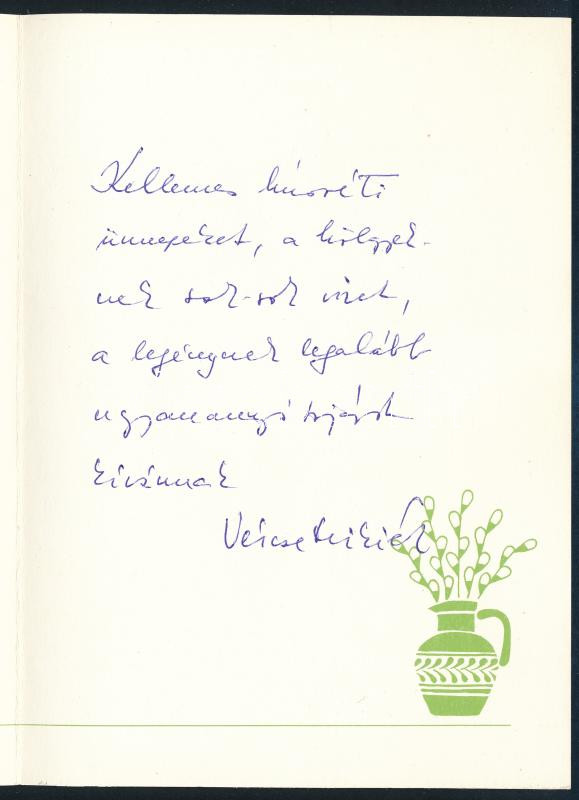 Kellemes húsvéti
ünnepeket, a hölgyek-
nek sok-sok vizet,
a legénynek legalább
ugyanannyi tojást
kívánnak